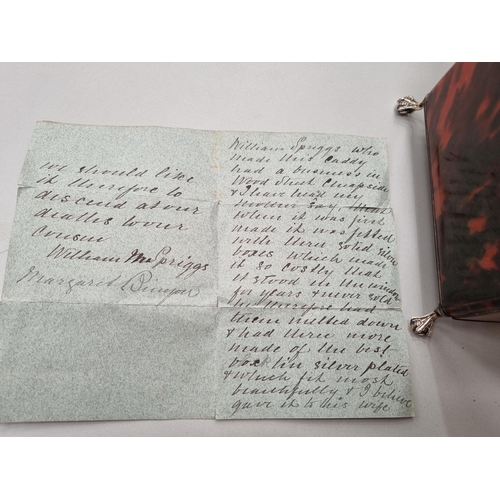 we should like
it therefore to
descend at our
deaths to our
cousin
William Spriggs
Margaret
William Spriggs who
made this caddy
had a business in
Wood Street Cheapside
& I have heard my
Mother say,
when it was first
made it was fitted
with three solid silver
boxes which made
it so costly that
it stood in the window
for years & never sold
he therefore had
them melted down
& had three more
made of the best
block tin silver plated
& which fit most
beautifully & I believe
gave it to his wife